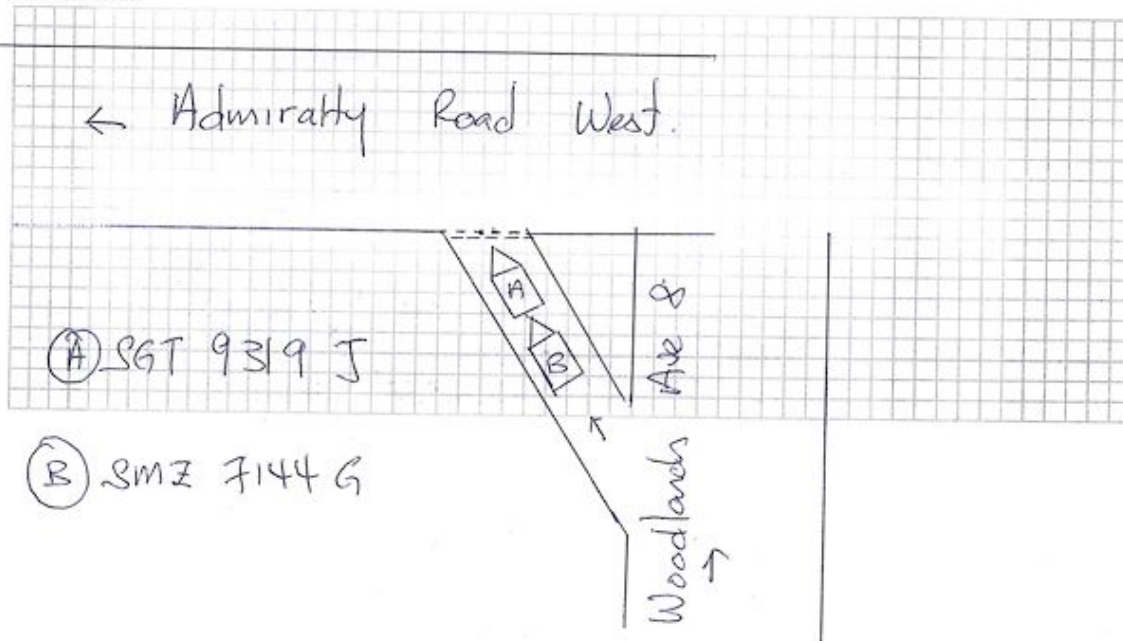 ← Admiralty Road West.
A
B
Ⓐ SGT 9319 J
Ⓑ SMZ 7144 G
Woodlands Ave 8
↑